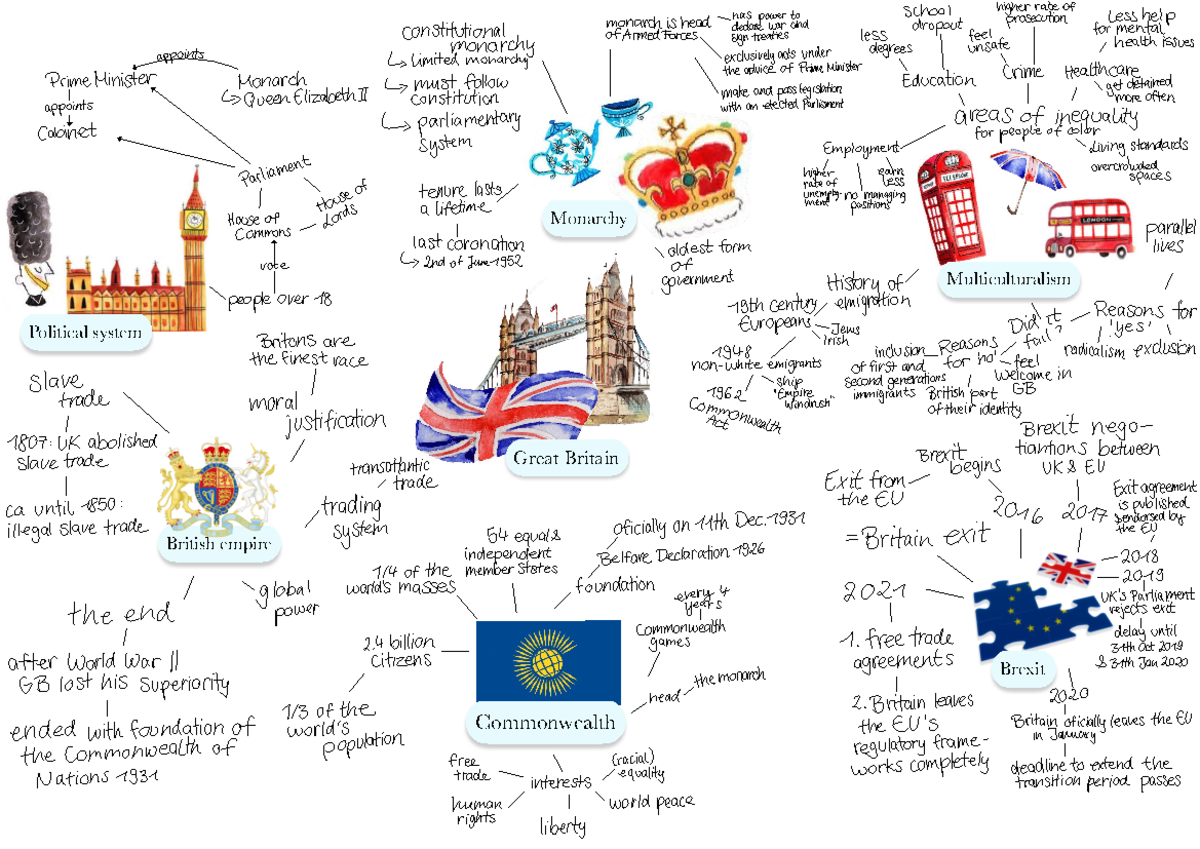 appoints
Prime Minister
appoints
Cabinet
Monarch
Queen Elizabeth II
Parliament
House of
Commons
House of
Lords
vote
people over 18
Political system
constitutional
monarchy
limited monarchy
must follow
constitution
parliamentary
system
tenure lasts
a lifetime
last coronation
2nd of June 1952
monarch is head
of Armed Forces
has power to
declare war and
sign treaties
exclusively acts under
the advice of Prime Minister
make and pass legislation
with an elected Parliament
Monarchy
oldest form
of
government
school
dropout
less
degrees
Education
higher rate of
prosecution
feel
unsafe
Crime
Less help
for mental
health issues
Healthcare
get detained
more often
areas of inequality
for people of color
Living standards
overcrowded
spaces
Employment
higher
rate of
unemploy-
ment
no managing
positions
earn
less
TELEPHONE
LONDON
Multiculturalism
History of
emigration
19th century
Europeans
Jews
Irish
1948
non-white emigrants
ship
"Empire
Windrush"
1962
Commonwealth
Act
Did it
fail?
Reasons
for 'no'
inclusion
of first and
second generations
immigrants
British part
of their identity
feel
welcome in
GB
Reasons for
'yes'
parallel
lives
radicalism
exclusion
Great Britain
Britons are
the finest race
moral
justification
slave
trade
1807: UK abolished
slave trade
ca until 1850:
illegal slave trade
British empire
transatlantic
trade
trading
system
global
power
the end
after World War II
GB lost his superiority
ended with foundation of
the Commonwealth of
Nations 1931
54 equal &
independent
member states
1/4 of the
world's masses
2.4 billion
citizens
1/3 of the
world's
population
oficially on 11th Dec. 1931
Belfare Declaration 1926
foundation
every 4
years
Commonwealth
games
head
the monarch
Commonwealth
interests
free
trade
human
rights
liberty
world peace
(racial)
equality
Brexit
begins
Exit from
the EU
2016
= Britain exit
Brexit nego-
tiantions between
UK & EU
2017
Exit agreement
is published
& endorsed by
the EU
2018
2019
UK's Parliament
rejects exit
delay until
31th Oct 2019
& 31th Jan 2020
Brexit
2020
Britain oficially leaves the EU
in January
deadline to extend the
transition period passes
2021
1. free trade
agreements
2. Britain leaves
the EU's
regulatory frame-
works completely